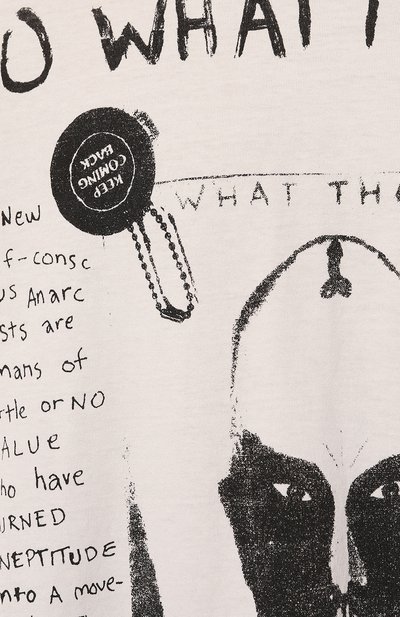 O WHAT T
KEEP
COMING
BACK
WHAT THO
New
f-consc
us Anarc
sts are
mans of
rtle or NO
ALUE
ho have
URNED
NEPTITUDE
nto A move-